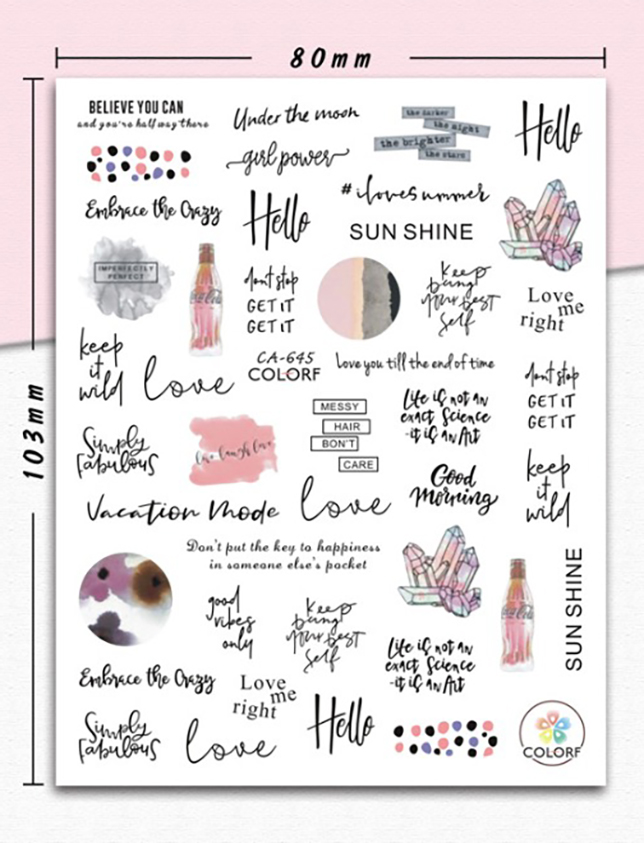 80mm
103mm
BELIEVE YOU CAN
and you're half way there
Under the moon
girl power
the darker
the night
the brighter
the stars
Hello
Embrace the Crazy
Hello
#ilovesummer
SUN SHINE
IMPERFECTLY
PERFECT
Coca-Cola
don't stop
GET IT
GET IT
keep
being
your best
self
Love
me
right
keep
it
wild
love
CA-645
COLORF
Love you till the end of time
Life is not an
exact Science
-it is an Art
don't stop
GET IT
GET IT
Simply
fabulous
live laugh love
MESSY
HAIR
BON'T
CARE
Good
Morning
keep
it
wild
Vacation Mode
love
Don't put the key to happiness
in someone else's pocket
good
vibes
only
keep
being
your best
self
Coca-Cola
SUN SHINE
Life is not an
exact Science
-it is an Art
Embrace the Crazy
Love
me
right
Simply
fabulous
love
Hello
COLORF